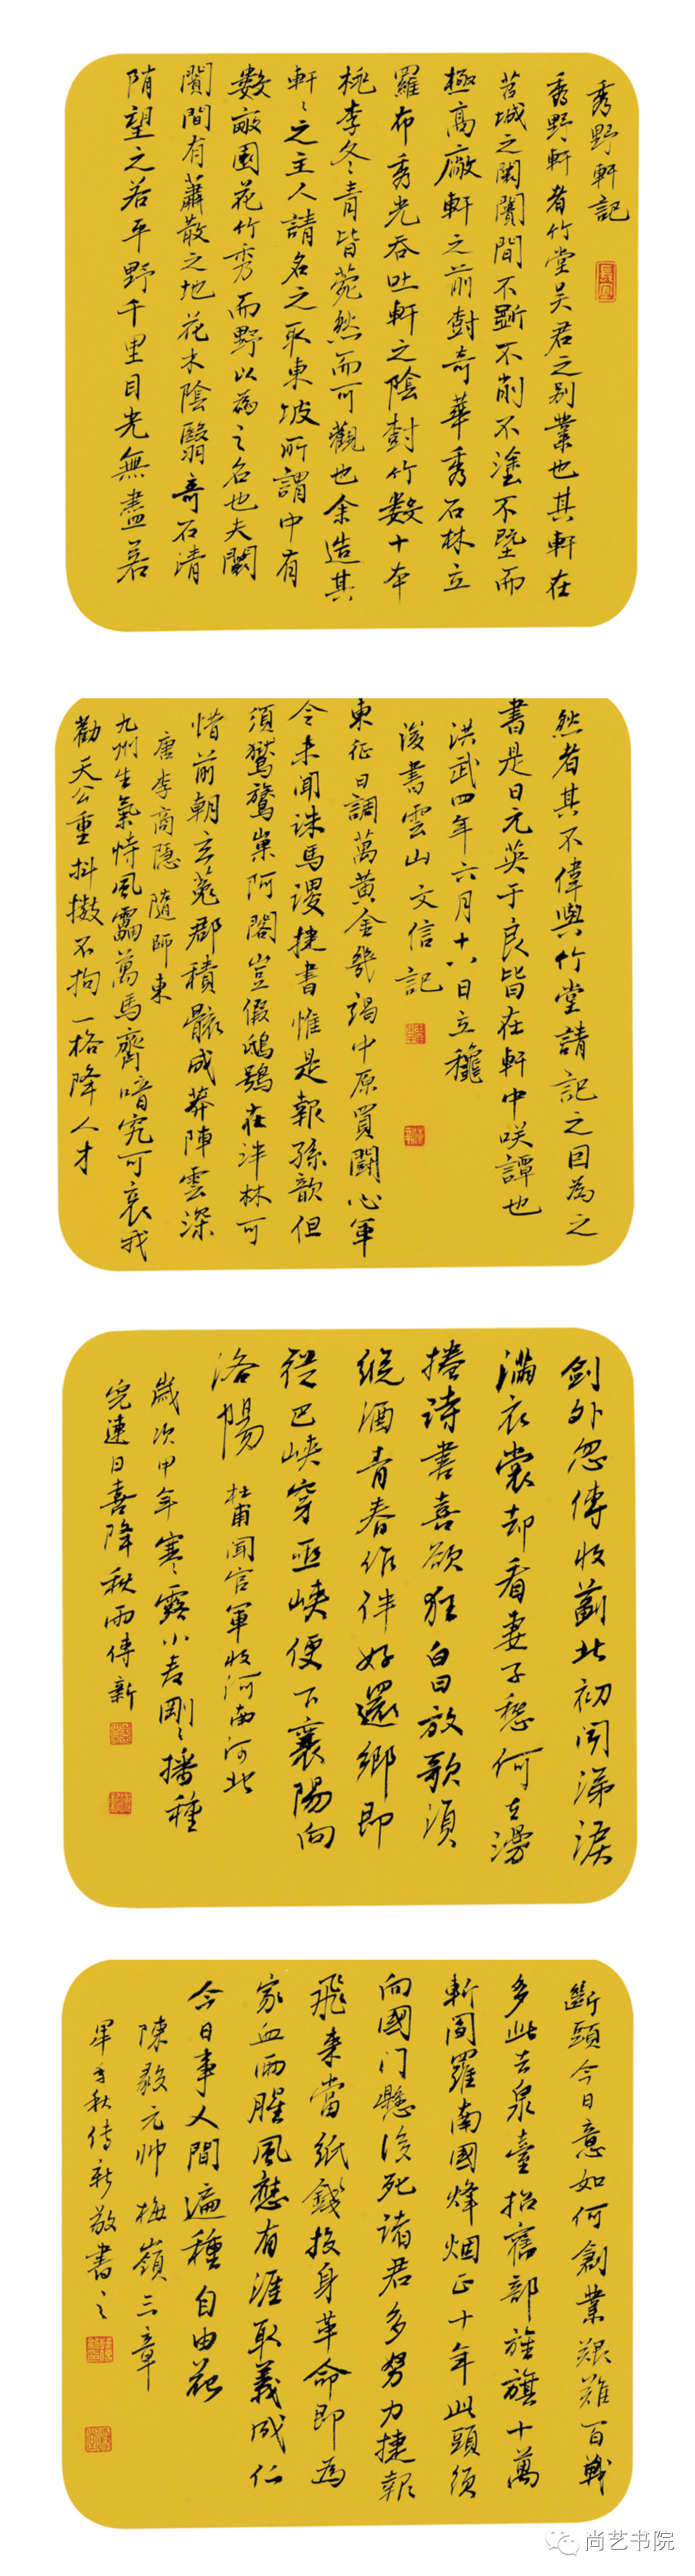 秀野軒記
秀野軒者竹堂吴君之别業也其軒在
苕城之闤闠間不斵不削不塗不墍而
極高廠軒之前樹奇華秀石林立
羅布秀光吞吐軒之陰樹竹数十本
桃李冬青皆菀然而可觀也余造其
軒々之主人請名之取東坡所謂中有
数畝園花竹秀而野以為之名也夫闤
闠間有蕭散之地花木陰翳奇石清
陏望之若平野千里目光無盡若
然者其不偉與竹堂請記之因為之
書是日元英于良皆在軒中咲譚也
洪武四年六月十八日立穐
後書雲山文信記
東征日調萬黄金幾竭中原買鬪心軍
令未聞誅馬謖捷書惟是報孫歆但
須鸑鷟巢阿閣豈假鴟鴞在泮林可
惜前朝玄菟郡積骸成莽陣雲深
唐李商隱 隨師東
九州生氣恃風雷萬馬齊喑究可哀我
勸天公重抖擻不拘一格降人才
劍外忽傳收薊北初聞涕淚
滿衣裳却看妻子愁何在漫
捲詩書喜欲狂白日放歌須
縱酒青春作伴好還鄉即
從巴峽穿巫峽便下襄陽向
洛陽 杜甫聞官軍收河南河北
歲次甲午寒露小麦剛々播種
完連日喜降秋雨傳新
斷頭今日意如何創業艱難百戰
多此去泉臺招舊部旌旗十萬
斬閻羅南國烽烟正十年此頭須
向國门懸後死諸君多努力捷報
飛來當紙錢投身革命即為
家血雨腥風應有涯取義成仁
今日事人間遍種自由花
陳毅元帅梅嶺三章
甲午秋傳新敬書之
尚艺书院